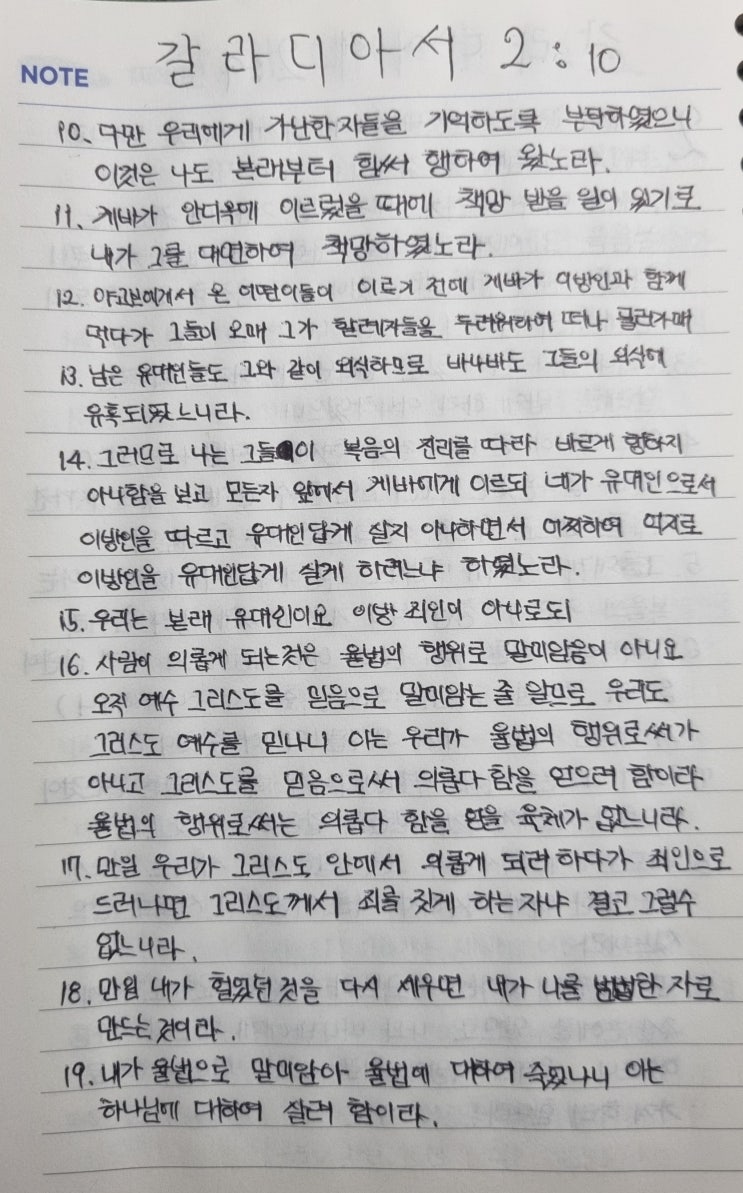 갈라디아서 2:10
NOTE
10. 다만 우리에게 가난한자들을 기억하도록 부탁하였으니
이것은 나도 본래부터 힘써 행하여 왔노라.
11. 게바가 안디옥에 이르렀을 때에 책망 받을 일이 있기로
내가 그를 대면하여 책망하였노라.
12. 야고보에게서 온 어떤이들이 이르기 전에 게바가 이방인과 함께
먹다가 그들이 오매 그가 할례자들을 두려워하여 떠나 물러가매
13. 남은 유대인들도 그와 같이 외식하므로 바나바도 그들의 외식에
유혹되었느니라.
14. 그러므로 나는 그들이 복음의 진리를 따라 바르게 행하지
아니함을 보고 모든자 앞에서 게바에게 이르되 네가 유대인으로서
이방인을 따르고 유대인답게 살지 아니하면서 어찌하여 억지로
이방인을 유대인답게 살게 하려느냐 하였노라.
15. 우리는 본래 유대인이요 이방 죄인이 아니로되
16. 사람이 의롭게 되는것은 율법의 행위로 말미암음이 아니요
오직 예수 그리스도를 믿음으로 말미암는 줄 알므로 우리도
그리스도 예수를 믿나니 이는 우리가 율법의 행위로써가
아니고 그리스도를 믿음으로써 의롭다 함을 얻으려 함이라
율법의 행위로써는 의롭다 함을 얻을 육체가 없느니라.
17. 만일 우리가 그리스도 안에서 의롭게 되려 하다가 죄인으로
드러나면 그리스도께서 죄를 짓게 하는 자냐 결코 그럴수
없느니라.
18. 만일 내가 헐었던 것을 다시 세우면 내가 나를 범법한 자로
만드는 것이라.
19. 내가 율법으로 말미암아 율법에 대하여 죽었나니 이는
하나님에 대하여 살려 함이라.